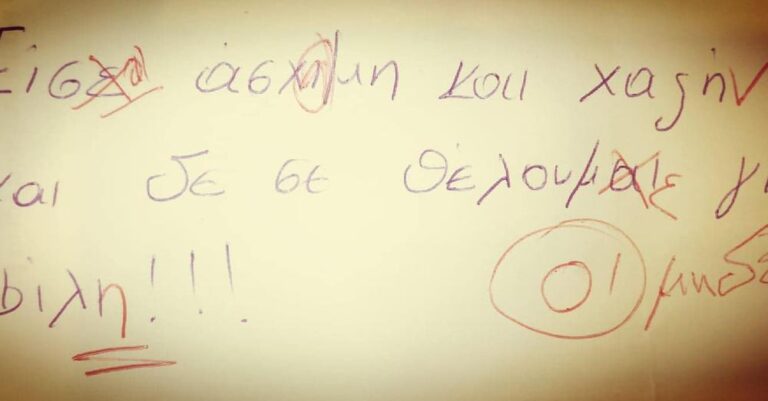 Είσε άσχημη και χαζή
και δε σε θέλουμαι γι
φίλη!!! 0 μηδέ